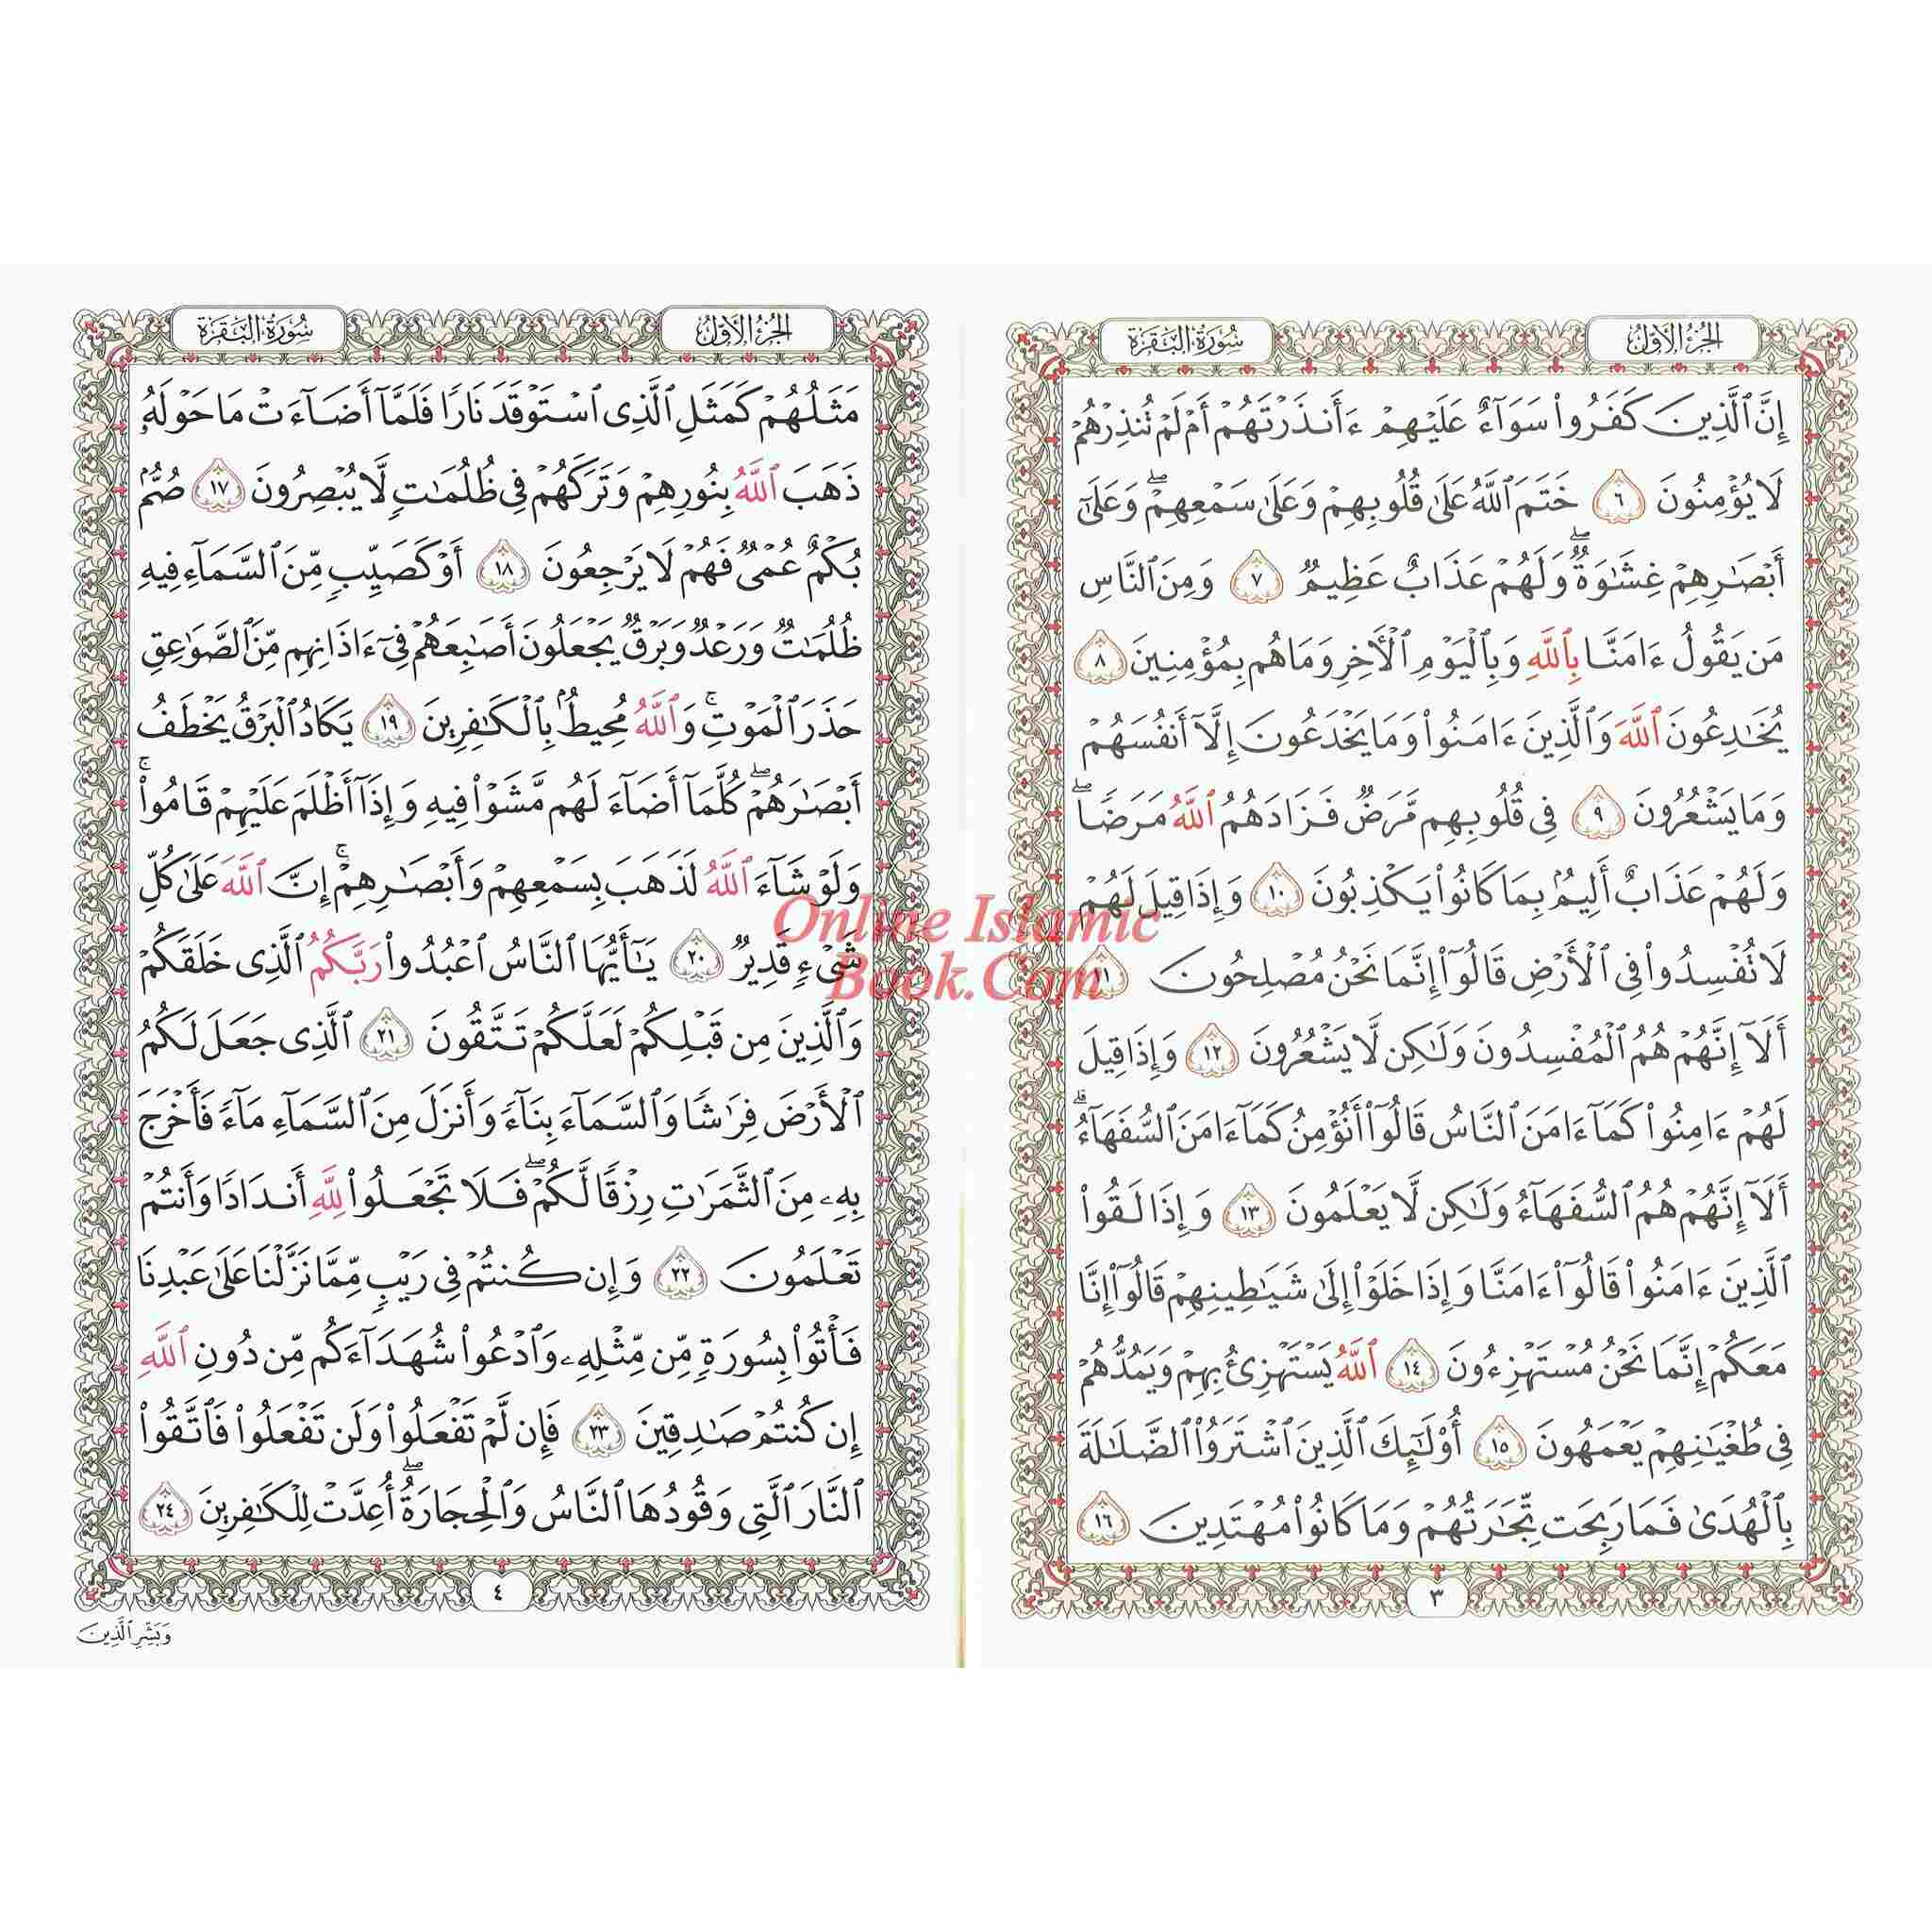 الجزء الأول
سورة البقرة
إِنَّ ٱلَّذِينَ كَفَرُوا۟ سَوَآءٌ عَلَيْهِمْ ءَأَنذَرْتَهُمْ أَمْ لَمْ تُنذِرْهُمْ
لَا يُؤْمِنُونَ ٦ خَتَمَ ٱللَّهُ عَلَىٰ قُلُوبِهِمْ وَعَلَىٰ سَمْعِهِمْ ۖ وَعَلَىٰٓ
أَبْصَـٰرِهِمْ غِشَـٰوَةٌ ۖ وَلَهُمْ عَذَابٌ عَظِيمٌ ٧ وَمِنَ ٱلنَّاسِ
مَن يَقُولُ ءَامَنَّا بِٱللَّهِ وَبِٱلْيَوْمِ ٱلْـَٔاخِرِ وَمَا هُم بِمُؤْمِنِينَ ٨
يُخَـٰدِعُونَ ٱللَّهَ وَٱلَّذِينَ ءَامَنُوا۟ وَمَا يَخْدَعُونَ إِلَّآ أَنفُسَهُمْ
وَمَا يَشْعُرُونَ ٩ فِى قُلُوبِهِم مَّرَضٌ فَزَادَهُمُ ٱللَّهُ مَرَضًا ۖ
وَلَهُمْ عَذَابٌ أَلِيمٌۢ بِمَا كَانُوا۟ يَكْذِبُونَ ١٠ وَإِذَا قِيلَ لَهُمْ
لَا تُفْسِدُوا۟ فِى ٱلْأَرْضِ قَالُوٓا۟ إِنَّمَا نَحْنُ مُصْلِحُونَ ١١
أَلَآ إِنَّهُمْ هُمُ ٱلْمُفْسِدُونَ وَلَـٰكِن لَّا يَشْعُرُونَ ١٢ وَإِذَا قِيلَ
لَهُمْ ءَامِنُوا۟ كَمَآ ءَامَنَ ٱلنَّاسُ قَالُوٓا۟ أَنُؤْمِنُ كَمَآ ءَامَنَ ٱلسُّفَهَآءُ ۗ
أَلَآ إِنَّهُمْ هُمُ ٱلسُّفَهَآءُ وَلَـٰكِن لَّا يَعْلَمُونَ ١٣ وَإِذَا لَقُوا۟
ٱلَّذِينَ ءَامَنُوا۟ قَالُوٓا۟ ءَامَنَّا وَإِذَا خَلَوْا۟ إِلَىٰ شَيَـٰطِينِهِمْ قَالُوٓا۟ إِنَّا
مَعَكُمْ إِنَّمَا نَحْنُ مُسْتَهْزِءُونَ ١٤ ٱللَّهُ يَسْتَهْزِئُ بِهِمْ وَيَمُدُّهُمْ
فِى طُغْيَـٰنِهِمْ يَعْمَهُونَ ١٥ أُو۟لَـٰٓئِكَ ٱلَّذِينَ ٱشْتَرَوُا۟ ٱلضَّلَـٰلَةَ
بِٱلْهُدَىٰ فَمَا رَبِحَت تِّجَـٰرَتُهُمْ وَمَا كَانُوا۟ مُهْتَدِينَ ١٦
٣
الجزء الأول
سورة البقرة
مَثَلُهُمْ كَمَثَلِ ٱلَّذِى ٱسْتَوْقَدَ نَارًا فَلَمَّآ أَضَآءَتْ مَا حَوْلَهُۥ
ذَهَبَ ٱللَّهُ بِنُورِهِمْ وَتَرَكَهُمْ فِى ظُلُمَـٰتٍ لَّا يُبْصِرُونَ ١٧ صُمٌّۢ
بُكْمٌ عُمْىٌ فَهُمْ لَا يَرْجِعُونَ ١٨ أَوْ كَصَيِّبٍ مِّنَ ٱلسَّمَآءِ فِيهِ
ظُلُمَـٰتٌ وَرَعْدٌ وَبَرْقٌ يَجْعَلُونَ أَصَـٰبِعَهُمْ فِىٓ ءَاذَانِهِم مِّنَ ٱلصَّوَٰعِقِ
حَذَرَ ٱلْمَوْتِ ۚ وَٱللَّهُ مُحِيطٌۢ بِٱلْكَـٰفِرِينَ ١٩ يَكَادُ ٱلْبَرْقُ يَخْطَفُ
أَبْصَـٰرَهُمْ ۖ كُلَّمَآ أَضَآءَ لَهُم مَّشَوْا۟ فِيهِ وَإِذَآ أَظْلَمَ عَلَيْهِمْ قَامُوا۟ ۚ
وَلَوْ شَآءَ ٱللَّهُ لَذَهَبَ بِسَمْعِهِمْ وَأَبْصَـٰرِهِمْ ۚ إِنَّ ٱللَّهَ عَلَىٰ كُلِّ
شَىْءٍ قَدِيرٌ ٢٠ يَـٰٓأَيُّهَا ٱلنَّاسُ ٱعْبُدُوا۟ رَبَّكُمُ ٱلَّذِى خَلَقَكُمْ
وَٱلَّذِينَ مِن قَبْلِكُمْ لَعَلَّكُمْ تَتَّقُونَ ٢١ ٱلَّذِى جَعَلَ لَكُمُ
ٱلْأَرْضَ فِرَٰشًا وَٱلسَّمَآءَ بِنَآءً وَأَنزَلَ مِنَ ٱلسَّمَآءِ مَآءً فَأَخْرَجَ
بِهِۦ مِنَ ٱلثَّمَرَٰتِ رِزْقًا لَّكُمْ ۖ فَلَا تَجْعَلُوا۟ لِلَّهِ أَندَادًا وَأَنتُمْ
تَعْلَمُونَ ٢٢ وَإِن كُنتُمْ فِى رَيْبٍ مِّمَّا نَزَّلْنَا عَلَىٰ عَبْدِنَا
فَأْتُوا۟ بِسُورَةٍ مِّن مِّثْلِهِۦ وَٱدْعُوا۟ شُهَدَآءَكُم مِّن دُونِ ٱللَّهِ
إِن كُنتُمْ صَـٰدِقِينَ ٢٣ فَإِن لَّمْ تَفْعَلُوا۟ وَلَن تَفْعَلُوا۟ فَٱتَّقُوا۟
ٱلنَّارَ ٱلَّتِى وَقُودُهَا ٱلنَّاسُ وَٱلْحِجَارَةُ ۖ أُعِدَّتْ لِلْكَـٰفِرِينَ ٢٤
٤
وَبَشِّرِ ٱلَّذِينَ
Online Islamic
Book.Com